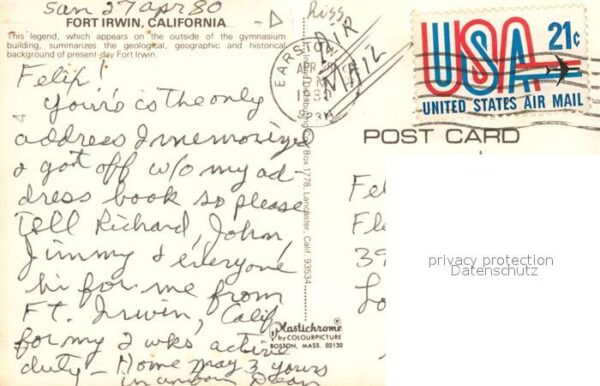 sun 27 apr 80
FORT IRWIN, CALIFORNIA
This legend, which appears on the outside of the gymnasium
building, summarizes the geological, geographic and historical
background of present-day Fort Irwin.
Felix!
Yours is the only
address I memorized
& got off w/o my ad-
dress book so please
tell Richard, John,
Jimmy & everyone
hi for me from
Ft. Irwin, Calif
for my 2 wks active
duty - Home may 3 yours
in
AIR
MAIL
BARSTOW
APR 28
USA 21¢
UNITED STATES AIR MAIL
POST CARD
Fel
Fle
39
Lo
privacy protection
Datenschutz
Box 1778, Lancaster, Calif. 93534
Plastichrome®
by COLOURPICTURE
BOSTON, MASS. 02130